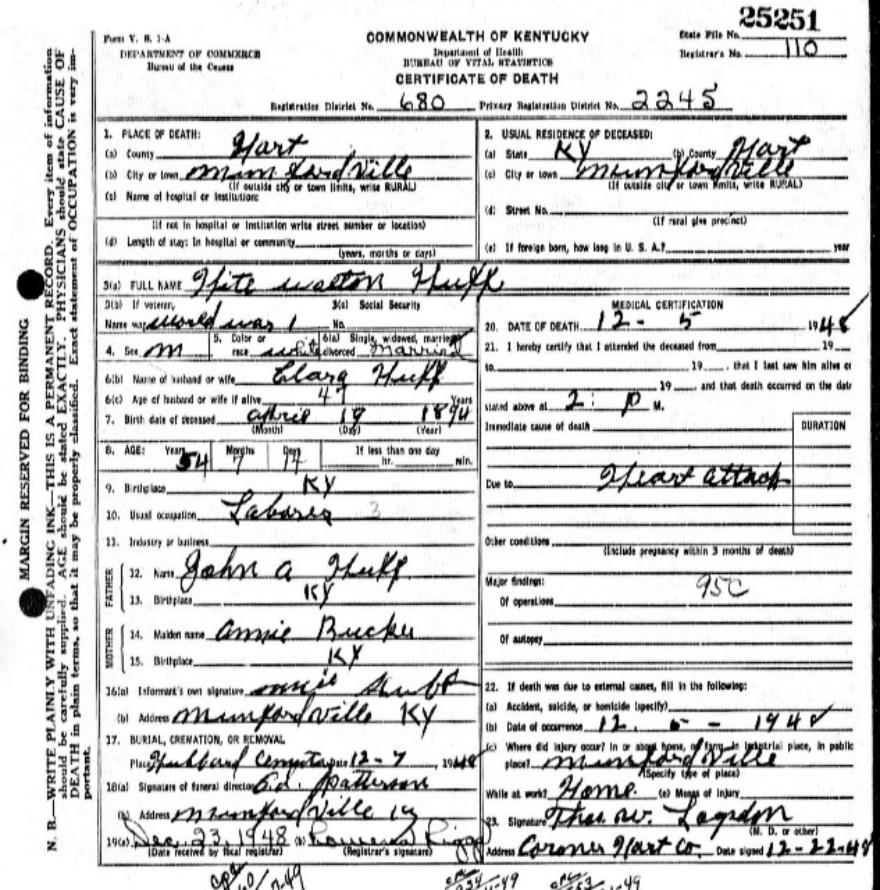 25251
Form V. S. 1-A
DEPARTMENT OF COMMERCE
Bureau of the Census
COMMONWEALTH OF KENTUCKY
Department of Health
BUREAU OF VITAL STATISTICS
CERTIFICATE OF DEATH
State File No.
Registrar's No. 110
Registration District No. 680 Primary Registration District No. 2245
MARGIN RESERVED FOR BINDING
N. B.—WRITE PLAINLY WITH UNFADING INK—THIS IS A PERMANENT RECORD. Every item of information
should be carefully supplied. AGE should be stated EXACTLY. PHYSICIANS should state CAUSE OF
DEATH in plain terms, so that it may be properly classified. Exact statement of OCCUPATION is very im-
portant.
1. PLACE OF DEATH:
(a) County Hart
(b) City or town MumfordVille
(If outside city or town limits, write RURAL)
(c) Name of hospital or institution:
(If not in hospital or institution write street number or location)
(d) Length of stay: In hospital or community
(years, months or days)
2. USUAL RESIDENCE OF DECEASED:
(a) State KY (b) County Hart
(c) City or town MumfordVille
(If outside city or town limits, write RURAL)
(d) Street No.
(If rural give precinct)
(e) If foreign born, how long in U. S. A.? year
3(a) FULL NAME Hite Walton Huff
3(b) If veteran, 3(c) Social Security
Name war World war 1 No.
4. Sex M 5. Color or race white 6(a) Single, widowed, married, divorced Married
6(b) Name of husband or wife Clara Huff
6(c) Age of husband or wife if alive 47 Years
7. Birth date of deceased April 19 1894
(Month) (Day) (Year)
8. AGE: Years 54 Months 7 Days 17 If less than one day
hr. min.
9. Birthplace KY
10. Usual occupation Laborer 3
11. Industry or business
FATHER
12. Name John A Huff
13. Birthplace KY
MOTHER
14. Maiden name Annie Bucker
15. Birthplace KY
16(a) Informant's own signature
(b) Address MumfordVille KY
17. BURIAL, CREMATION, OR REMOVAL
Place Hubbard Date 12-7 1948
18(a) Signature of funeral director E.d. Patterson
(b) Address MumfordVille Ky
19(a) Dec. 23, 1948 (b)
(Date received by local registrar) (Registrar's signature)
MEDICAL CERTIFICATION
20. DATE OF DEATH 12 - 5 1948
21. I hereby certify that I attended the deceased from 19
to 19 , that I last saw him alive o
19 and that death occurred on the date
stated above at 2: P M.
Immediate cause of death DURATION
Due to Heart attack
Other conditions
(Include pregnancy within 3 months of death)
Major findings:
Of operations 95C
Of autopsy
22. If death was due to external causes, fill in the following:
(a) Accident, suicide, or homicide (specify)
(b) Date of occurrence 12. 5 - 1948
(c) Where did injury occur? In or about home, on farm, in industrial place, in public
place? MumfordVille
(Specify type of place)
While at work? Home (e) Means of Injury
23. Signature Thos. W. Logsdon
(M. D. or other)
Address Coroner Hart Co. Date signed 12-22-48